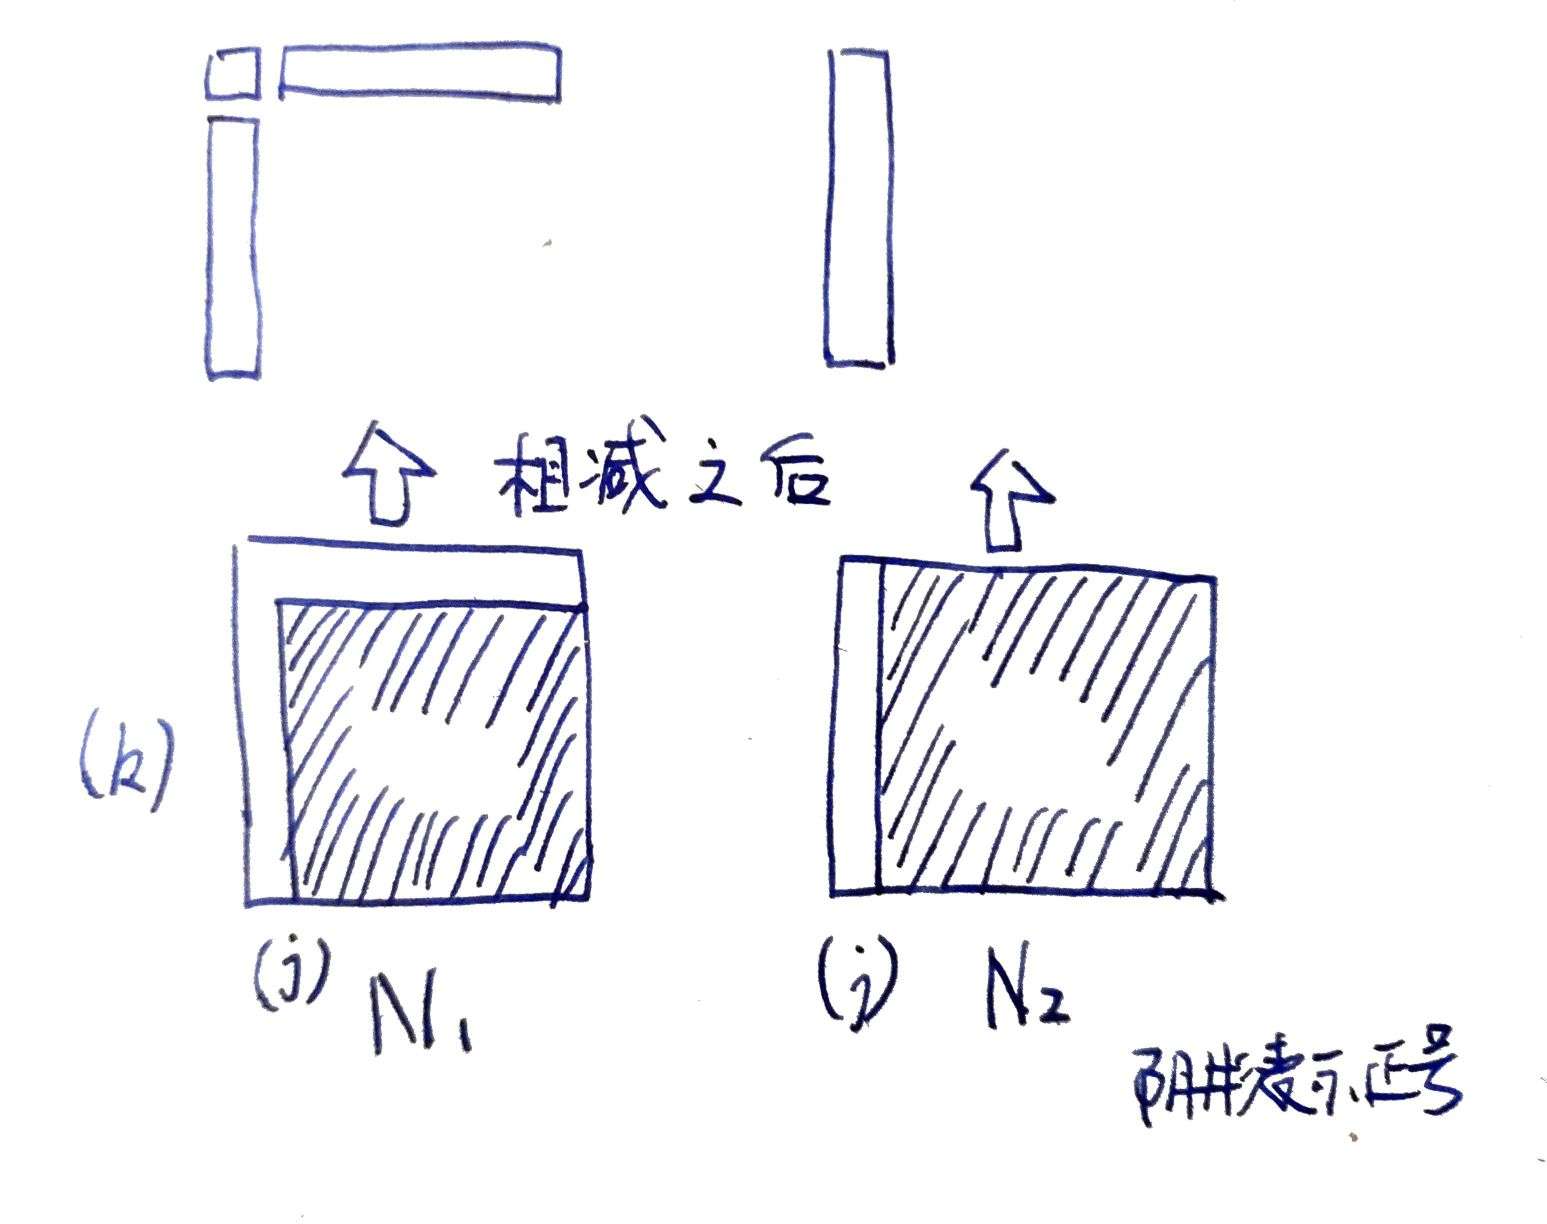 相减之后
(k)
(j) N₁
(j) N₂
阴影表示正号